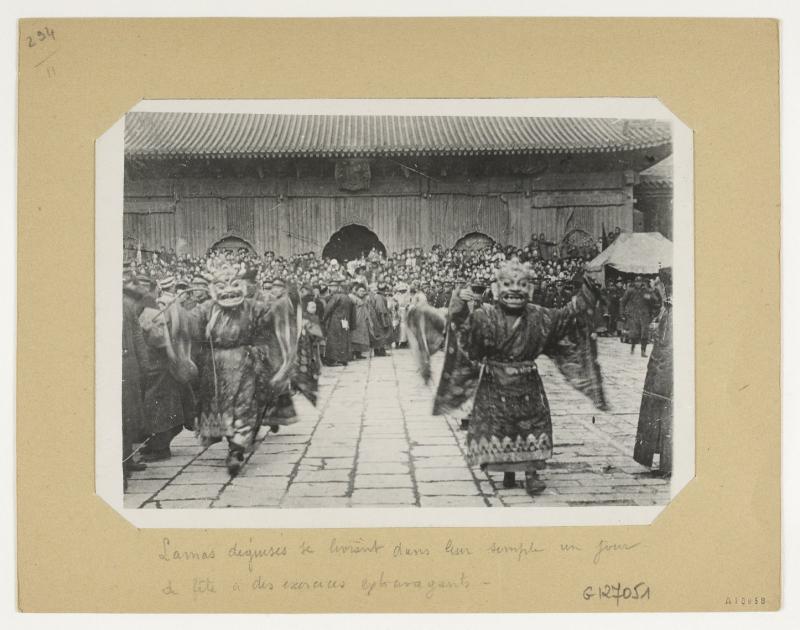 294
11
Lamas déguisés se livrant dans leur temple un jour
de fête à des exercices extravagants -
G127051